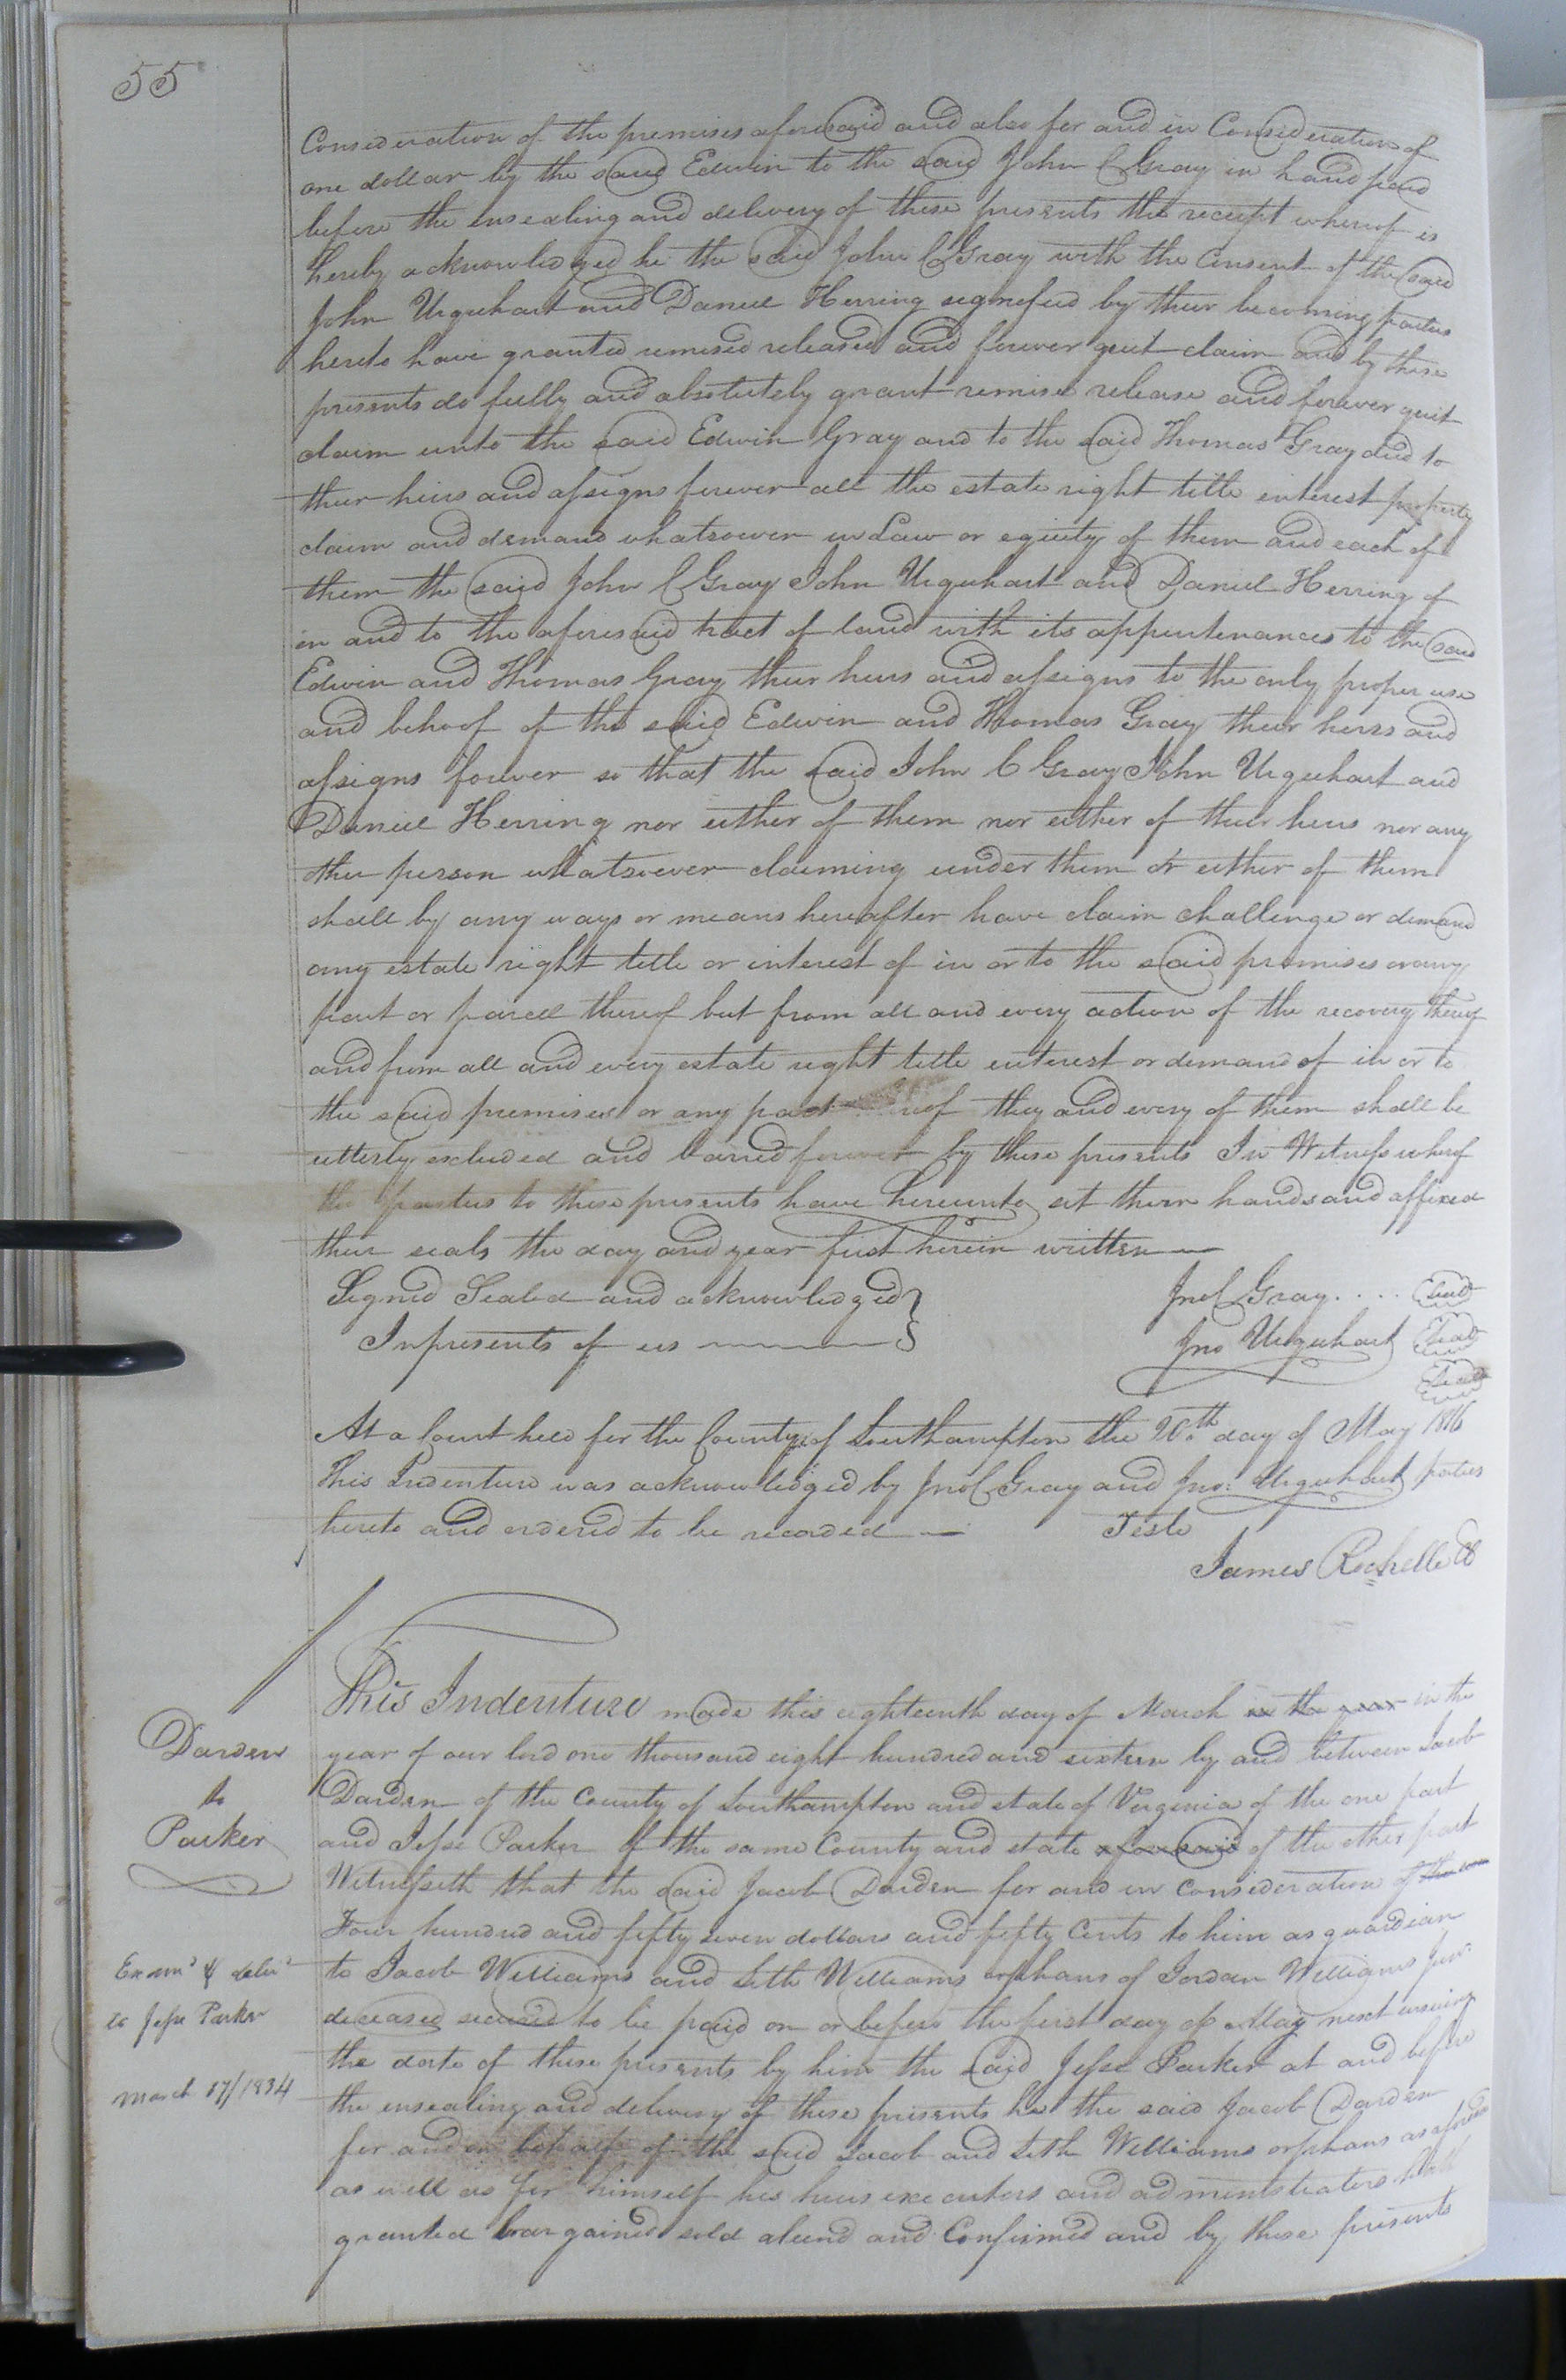 55
Consideration of the premises aforesaid and also for and in Consideration of
one dollar by the said Edwin to the said John C Gray in hand paid
before the ensealing and delivery of these presents the receipt whereof is
hereby acknowledged he the said John C Gray with the Consent of the said
John Urquhart and Daniel Herring signefied by their becoming parties
hereto have granted remised released and forever quit claim and by these
presents do fully and absolutely grant remise release and forever quit
claim unto the said Edwin Gray and to the said Thomas Gray and to
their heirs and assigns forever all the estate right title interest property
claim and demand whatsoever in Law or equity of them and each of
them the said John C Gray John Urquhart and Daniel Herring of
in and to the aforesaid tract of land with its appurtenances to the said
Edwin and Thomas Gray their heirs and assigns to the only proper use
and behoof of the said Edwin and Thomas Gray their heirs and
assigns forever so that the said John C Gray John Urquhart and
Daniel Herring nor either of them nor either of their heirs nor any
other person whatsoever claiming under them or either of them
shall by any ways or means hereafter have claim challenge or demand
any estate right title or interest of in or to the said premises or any
part or parcell thereof but from all and every action of the recovery thereof
and from all and every estate right title interest or demand of in or to
the said premises or any part reof they and every of them shall be
utterly excluded and barred forever by these presents In Witness whereof
the parties to these presents have hereunto set their hands and affixed
their seals the day and year first herein written
Signed Sealed and acknowledged } Jno C Gray .... Seal
In presents of us Jno Urquhart Seal
Seal
At a Court held for the County of Southampton the 20th day of May 1816
This Indenture was acknowledged by Jno C Gray and Jno: Urquhart parties
hereto and ordered to be recorded Teste
James Rochelle CC
This Indenture made this eighteenth day of March in the year in the
Darden
to
Parker
year of our lord one thousand eight hundred and sixteen by and between Jacob
Darden of the County of Southampton and state of Verginia of the one part
and Jesse Parker of the same County and state aforesaid of the other part
Witnesseth that the said Jacob Darden for and in consideration of the sum
Four hundred and fifty seven dollars and fifty Cents to him as guardian
Exam'd & deliv'd
to Jesse Parker
March 17/1834
to Jacob Williams and Seth Williams orphans of Jordan Williams Jun:
deceased secured to be paid on or before the first day of May next ensuing
the date of these presents by him the said Jesse Parker at and before
the ensealing and delivery of these presents he the said Jacob Darden
for and in behalf of the said Jacob and Seth Williams orphans as aforesaid
as well as for himself his heirs executors and administrators hath
granted bargained sold aliend and Confirmed and by these presents